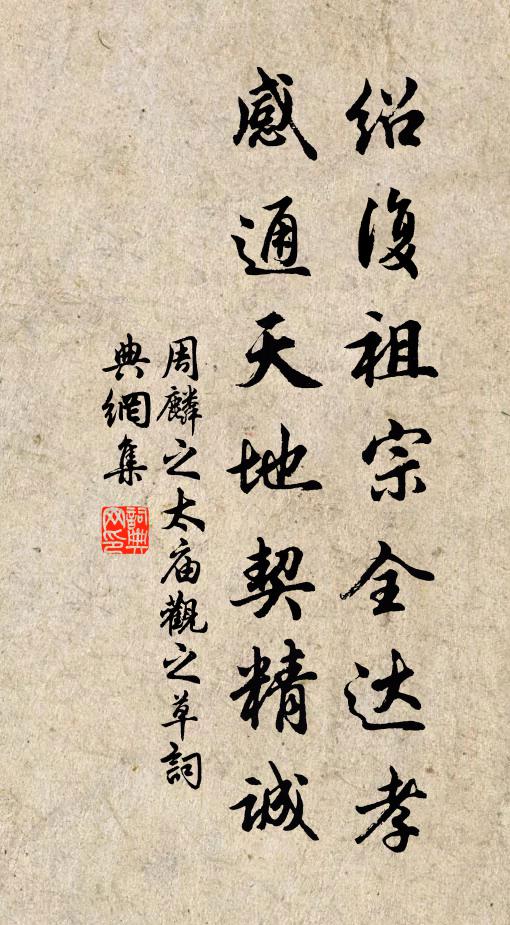 绍復祖宗全达孝
感通天地契精诚
周麟之太庙觀之草詞
典網集
詞典网印